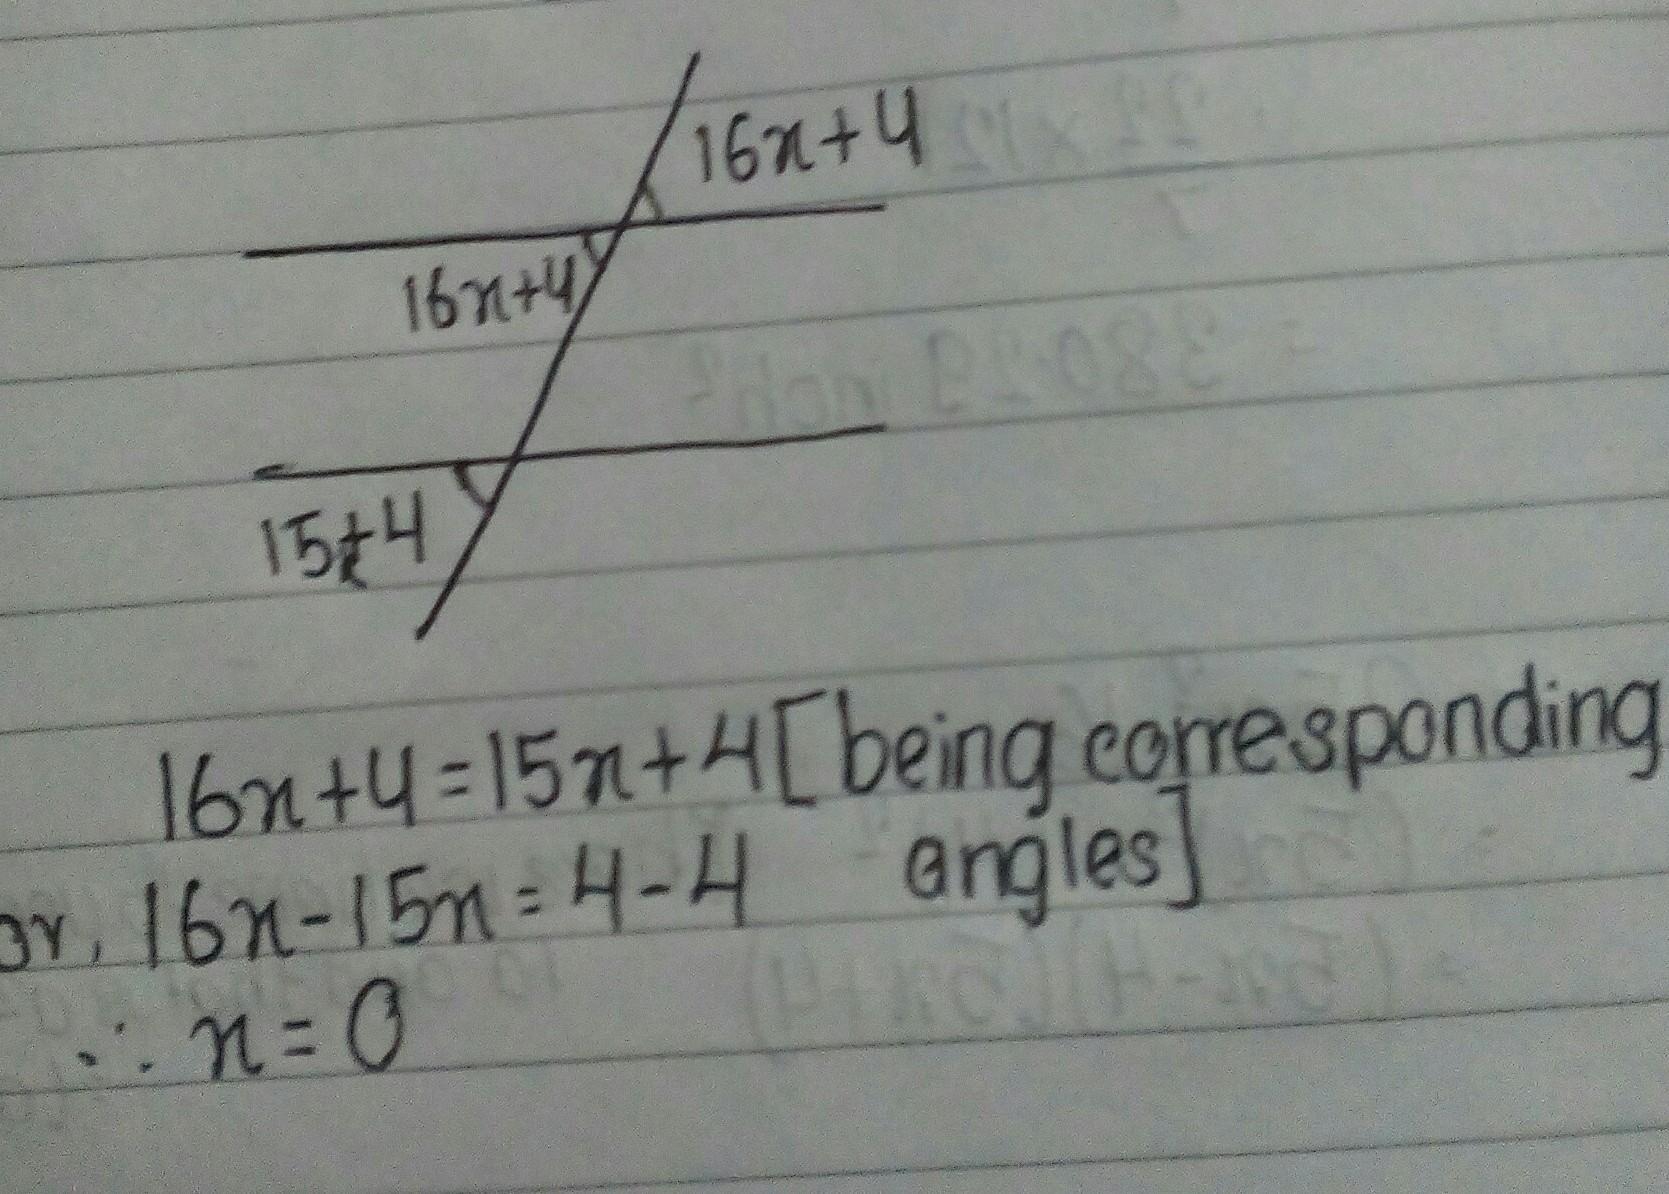 16x+4
16x+4
15+4
16x+4=15x+4[being corresponding
angles]
or, 16x-15x=4-4
∴ x=0